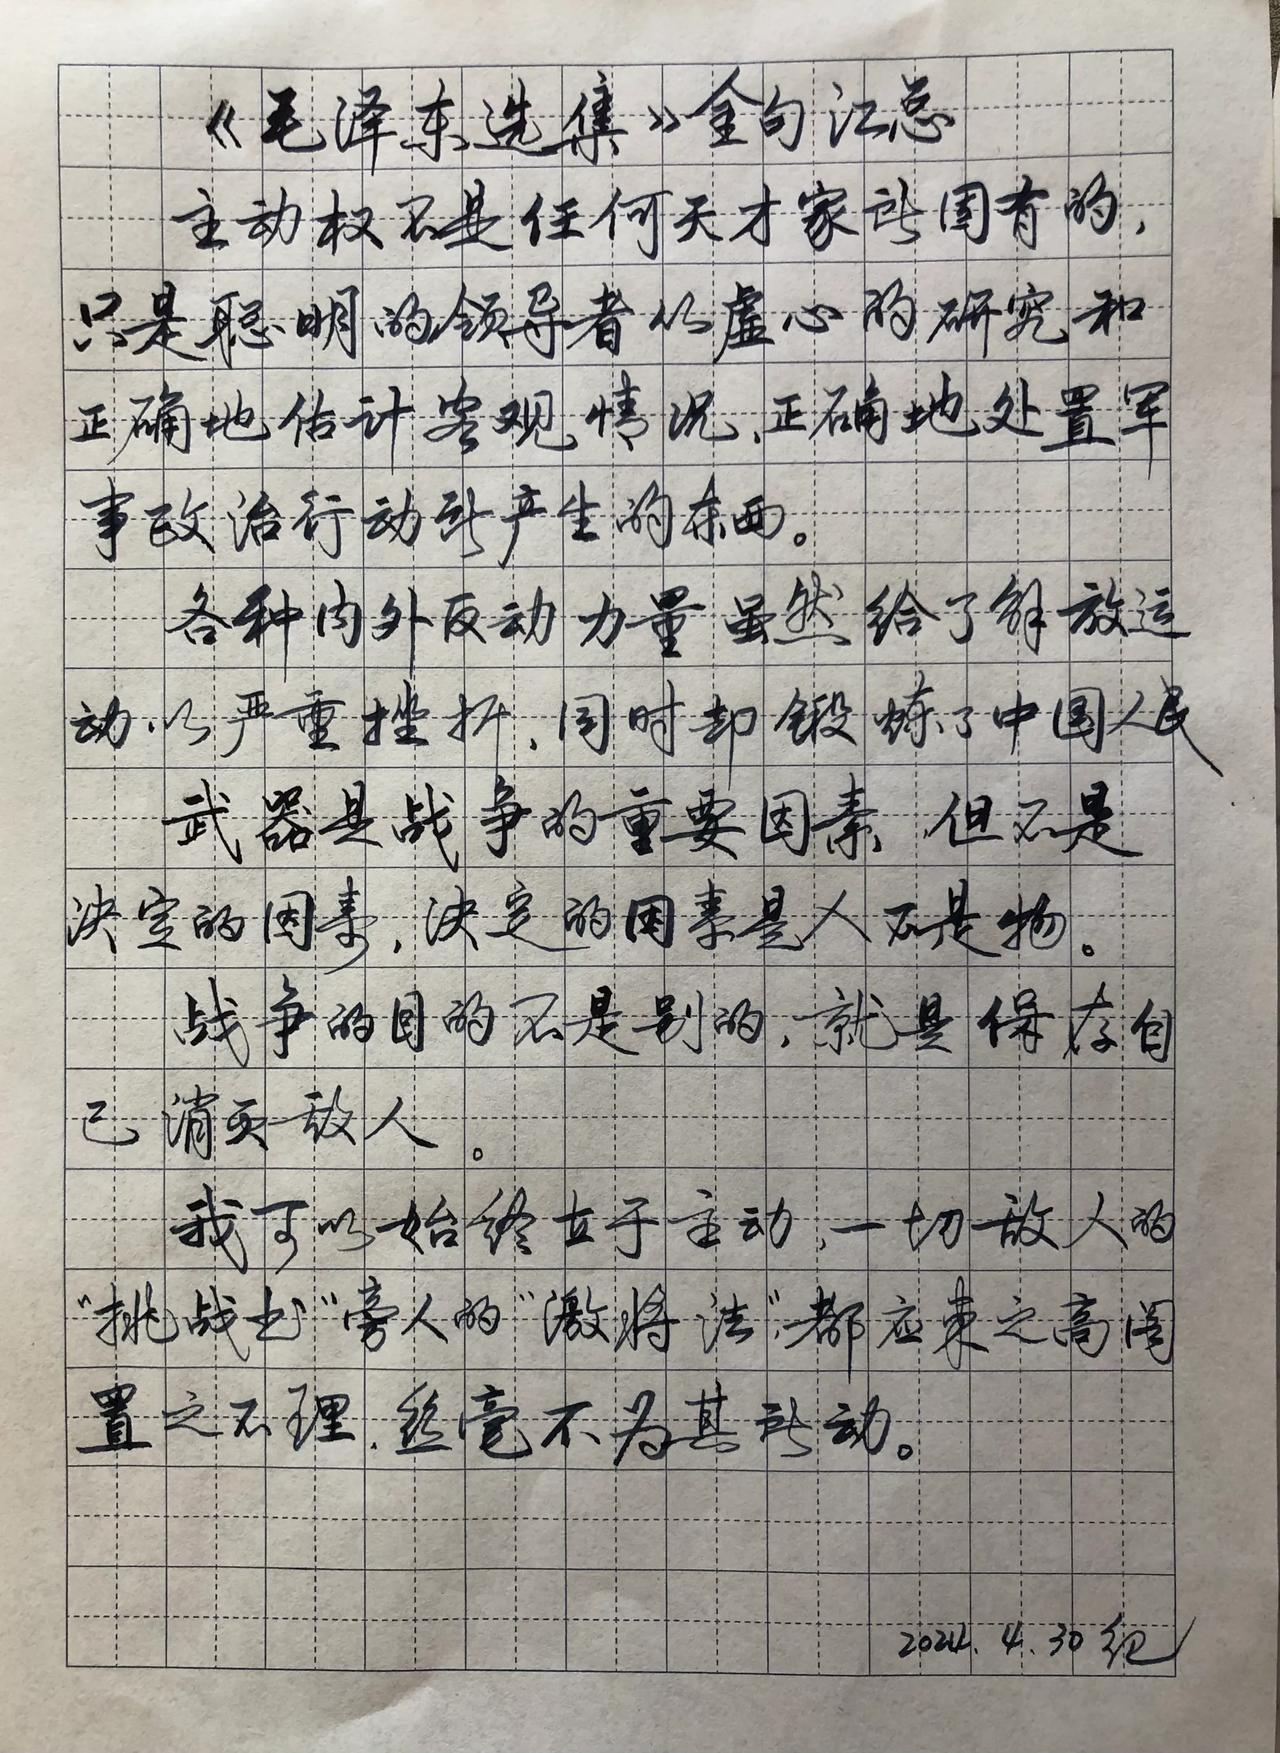 《毛泽东选集》金句汇总
主动权不是任何天才家所固有的,
只是聪明的领导者以虚心的研究和
正确地估计客观情况,正确地处置军
事政治行动所产生的东西。
各种内外反动力量虽然给了解放运
动以严重挫折,同时却锻炼了中国人民
武器是战争的重要因素,但不是
决定的因素,决定的因素是人不是物。
战争的目的不是别的,就是保存自
己消灭敌人。
我可以始终立于主动,一切敌人的
"挑战书"旁人的"激将法",都应束之高阁
置之不理,丝毫不为其所动。
2024.4.30